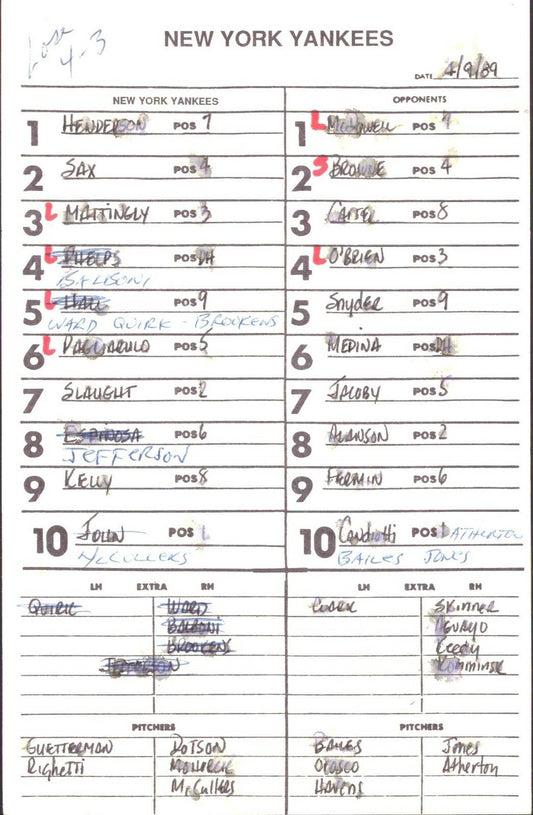 Lose
4-3
NEW YORK YANKEES
DATE 4/9/89
NEW YORK YANKEES
1 HENDERSON POS 7
2 SAX POS 4
3 L MATTINGLY POS 3
4 L PHELPS POS DH
BALBONI
5 L HALL POS 9
WARD QUIRK - BROOKENS
6 L PAGLIARULO POS 5
7 SLAUGHT POS 2
8 ESPINOSA POS 6
JEFFERSON
9 KELLY POS 8
10 JOHN POS 1
McCULLERS
OPPONENTS
1 L McDowell POS 7
2 S BROWNE POS 4
3 CARTER POS 8
4 L O'BRIEN POS 3
5 Snyder POS 9
6 MEDINA POS DH
7 JACOBY POS 5
8 ALLANSON POS 2
9 FERMIN POS 6
10 Candiotti POS 1 ATHERTON
BAILES JONES
LH EXTRA RH
QUIRK WARD
BALBONI
BROOKENS
JEFFERSON
LH EXTRA RH
CLARK SKINNER
AGUAYO
Keedy
Komminsk
PITCHERS
GUETTERMAN DOTSON
Righetti MOHORCIC
McCullers
PITCHERS
BAILES Jones
OROSCO Atherton
HAVENS